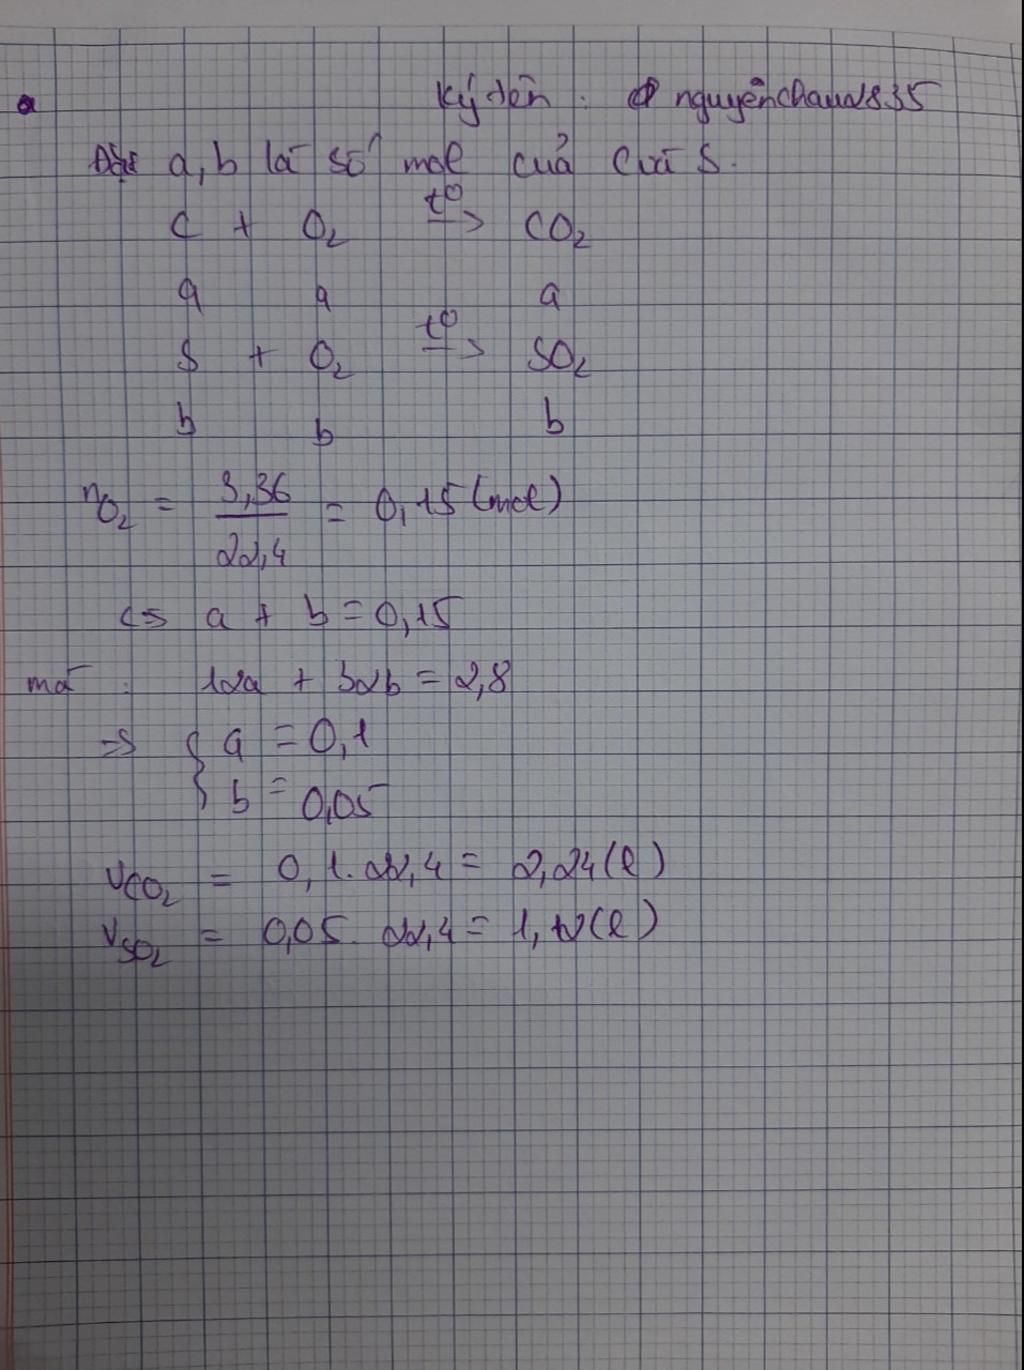 Ký tên : nguyênchau2835
Đặt a, b là số mol của C và S.
C + O₂ t⁰--> CO₂
a a a
S + O₂ t⁰--> SO₂
b b b
nO₂ = 3,36/22,4 = 0,15 (mol)
<=> a + b = 0,15
mà : 12a + 32b = 2,8
=> { a = 0,1
{ b = 0,05
VCO₂ = 0,1. 22,4 = 2,24 (l)
VSO₂ = 0,05. 22,4 = 1,12 (l)